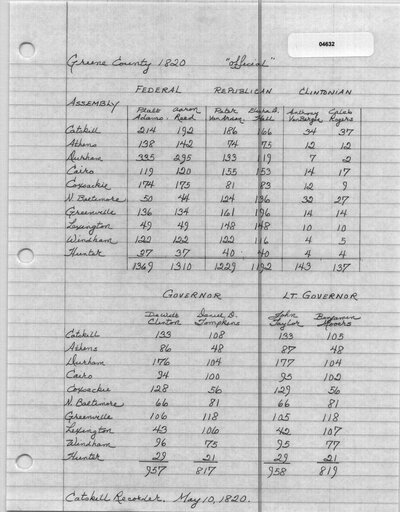 04632
Greene County 1820 "official"
FEDERAL REPUBLICAN CLINTONIAN
ASSEMBLY Platt Adams Aaron Reed Peter Van Orden Elisha B. Hall Anthony Van Bergen Caleb Rogers
Catskill 214 192 186 166 34 37
Athens 138 142 74 75 12 12
Durham 335 295 133 119 7 2
Cairo 119 120 155 153 14 17
Coxsackie 174 175 81 83 12 9
N. Baltimore 50 44 124 136 32 27
Greenville 136 134 161 196 14 14
Lexington 49 49 148 148 10 10
Windham 122 122 122 116 4 5
Hunter 37 37 40 40 4 4
1369 1310 1229 1192 143 137
GOVERNOR LT. GOVERNOR
DeWitt Clinton Daniel D. Tompkins John Taylor Benjamin Mooers
Catskill 133 108 133 105
Athens 86 48 87 48
Durham 176 104 177 104
Cairo 94 100 95 102
Coxsackie 128 56 129 56
N. Baltimore 66 81 66 81
Greenville 106 118 105 118
Lexington 43 106 42 107
Windham 96 75 95 77
Hunter 29 21 29 21
957 817 958 819
Catskill Recorder. May 10, 1820.